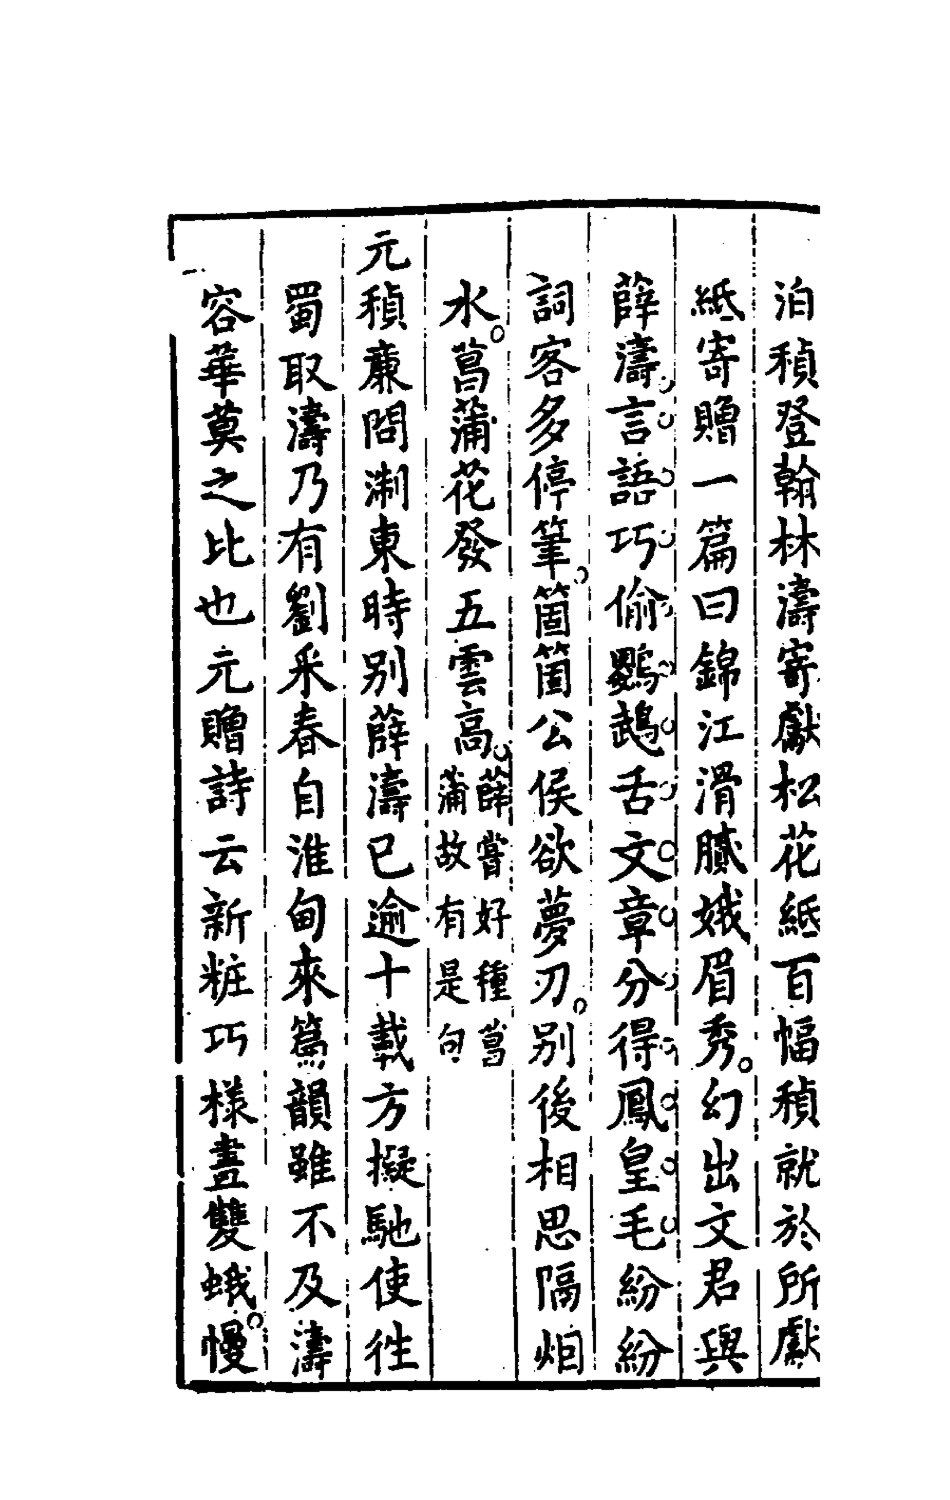 泊稹登翰林濤寄獻松花紙百幅稹就於所獻
紙寄贈一篇曰錦江滑膩娥眉秀。幻出文君與
薛濤言語巧偷鸚鵡舌文章分得鳳皇毛紛紛
詞客多停筆。箇箇公侯欲夢刀。别後相思隔烟
水。菖蒲花發五雲高。薛嘗好種菖
蒲故有是句
元稹亷問淛東時别薛濤已逾十載方擬馳使徃
蜀取濤乃有劉采春自淮甸來篇韻雖不及濤
容華莫之比也元贈詩云新粧巧様畫雙蛾。慢